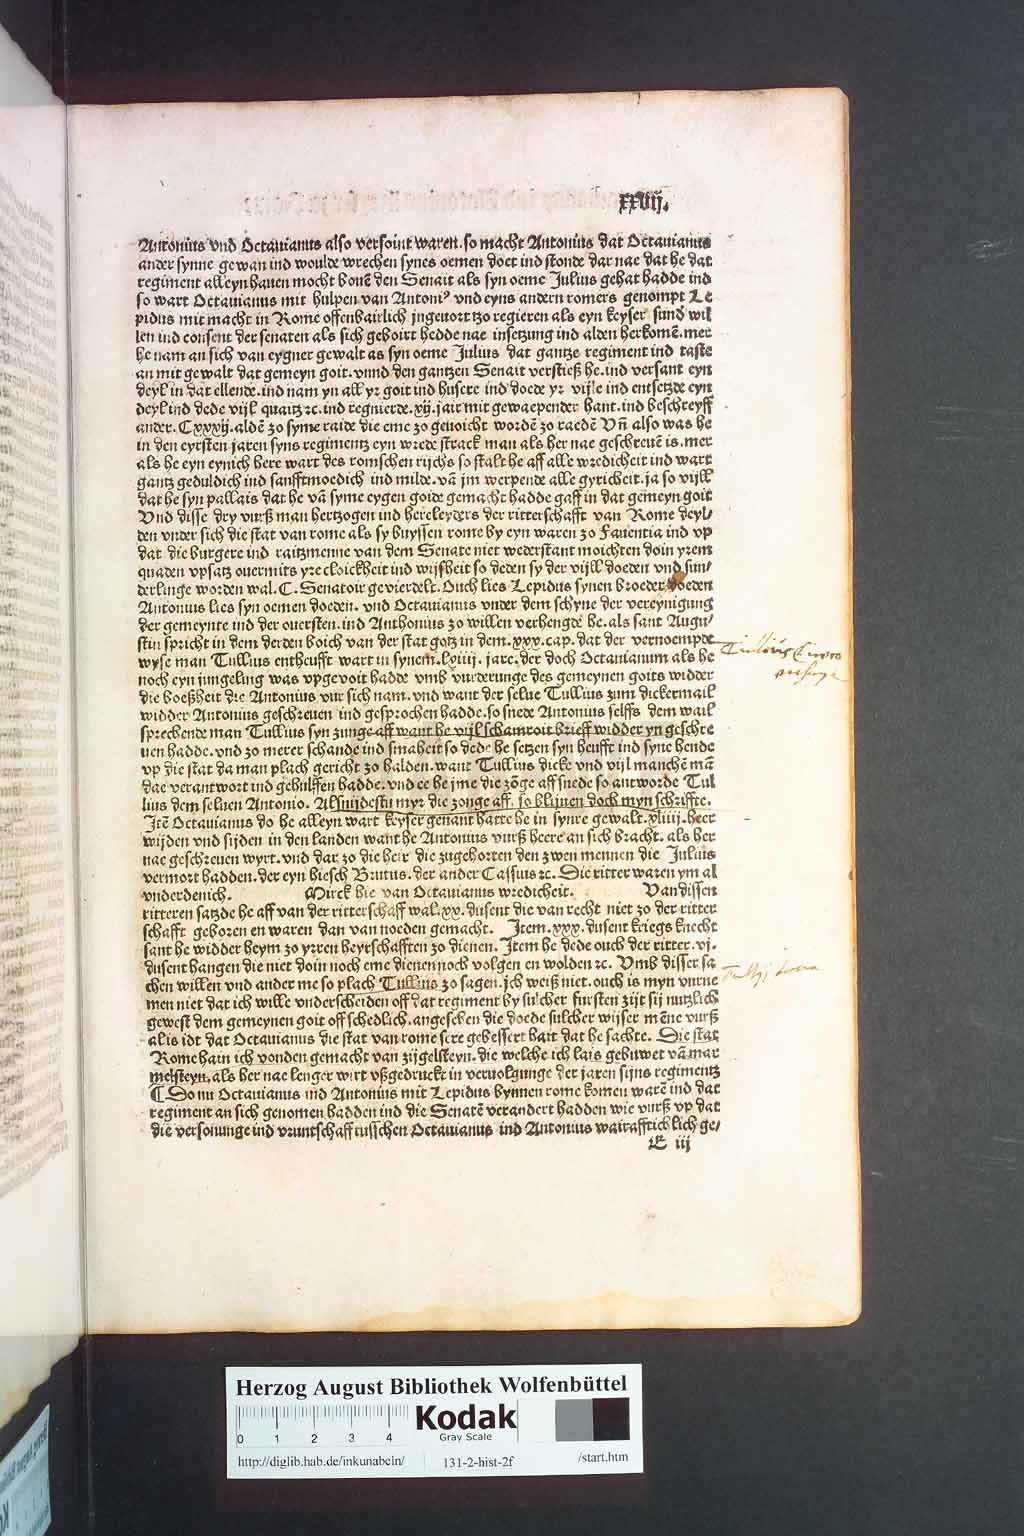 xxvij.
Antonius vnd Octauianus also versoint waren. so macht Antonius dat Octauianus
ander synne gewan ind woulde wrechen synes oemen doet ind stonde dar nae dat he dat
regiment alleyn hauen mocht bouē den Senait als syn oeme Julius gehat hadde ind
so wart Octauianus mit hulpen van Antoniꝰ vnd eyns andern romers genompt Le
pidus mit macht in Rome offenbairlich jngeuort tzo regieren als eyn keyser sund wil
len ind consent der senaten als sich gehoirt hedde nae insetzung ind alden herkomē. mer
he nam an sich van eygner gewalt as syn oeme Julius dat gantze regiment ind taste
an mit gewalt dat gemeyn goit. vnnd den gantzen Senait verstieß he. ind versant eyn
deyl in dat ellende. ind nam yn all yr goit ind husere ind doede yr vijle ind entsetzde eyn
deyl ind dede vijl quaitz ꝛc. ind regnierde. xij. jair mit gewaepender hant. ind beschreyff
ander. C xxxij. aldē zo syme raide die eme zo geuoicht wordē zo raedē Vn̄ also was he
in den eyrsten jaren syns regimentz eyn wrede strack man als her nae geschreuē is. mer
als he eyn eynich here wart des romschen rijchs so stalt he aff alle wredicheit ind wart
gantz geduldich ind sanfftmoedich ind milde. vā jm werpende alle gyricheit. ja so vijll
dat he syn pallais dat he vā syme eygen goide gemacht hadde gaff in dat gemeyn goit
Vnd disse dry vurß man hertzogen ind hereleyders der ritterschafft van Rome deyl⸗
den vnder sich die stat van rome als sy buyssen rome by eyn waren zo Fauentia ind vp
dat die burgere ind raitzmenne van dem Senate niet wederstant moichten doin yrem
quaden vpsatz ouermits yre cloickheit ind wijsheit so deden sy der vijll doeden vnd sun⸗
derlinge worden wal. C. Senatoir gevierdelt. Ouch lies Lepidus synen broeder doeden
Antonius lies syn oemen doeden. vnd Octauianus vnder dem schyne der vereynigung
der gemeynte ind der ouersten. ind Anthonius zo willen verhengde he. als sant Augu⸗
stin spricht in dem derden boich van der stat gotz in dem. xxx. cap. dat der vernoempde
wyse man Tullius entheufft wart in synem. lxiiij. jare. der doch Octauianum als he
noch eyn jungeling was vpgevoit hadde vmb vurderunge des gemeynen goits widder
die boeßheit die Antonius vur sich nam. vnd want der selue Tullius zum dickermail
widder Antonius geschreuen ind gesprochen hadde. so snede Antonius selffs dem wail
sprechende man Tullius syn zunge aff want he vijl schamroit brieff widder yn geschre
uen hadde. vnd zo merer schande ind smaheit so dede he setzen syn heufft ind syne hende
vp die stat da man plach gericht zo halden. want Tullius dicke vnd vijl manchē mā
dae verantwort ind gehulffen hadde. vnd ee he jme die zōge aff snede so antworde Tul
lius dem seluen Antonio. Alsnijdestu myr die zonge aff. so blijuen doch myn schriffte.
Jtē Octauianus do he alleyn wart keyser genant hatte he in synre gewalt. xliiij. heer
wijden vnd sijden in den landen want he Antonius vurß heere an sich bracht. als her
nae geschreuen wyrt. vnd dar zo die heir die zugehorten den zwen mennen die Julius
vermort hadden. der eyn hiesch Brutus. der ander Cassuis ꝛc. Die ritter waren ym al
vnderdenich. Mirck hie van Octauianus wredicheit. Van dissen
ritteren satzde he aff van der ritterschaff wal. xx. dusent die van recht niet zo der ritter
schafft geboren en waren dan van noeden gemacht. Jtem. xxx. dusent kriegs knecht
sant he widder heym zo yrren heyrschafften zo dienen. Jtem he dede ouch der ritter. vj.
dusent hangen die niet doin noch eme dienen noch volgen en wolden ꝛc. Vmb disser sa
chen willen vnd ander me so plach Tullius zo sagen. jch weiß niet. ouch is myn vurne
men niet dat ich wille vnderscheiden off dat regiment by sulcher fursten zijt sij nutzlich
gewest dem gemeynen goit off schedlich. angesehen die doede sulcher wijser mēne vurß
al is idt dat Octauianus die stat van rome sere gebessert hait dat he sachte. Die stat
Rome hain ich vonden gemacht van zijgelsteyn. die welche ich lais gebuwet vā mar
melsteyn. als her nae lenger wirt vßgedruckt in veruolgunge der jaren sijns regimentz
¶ Do nu Octauianus ind Antonius mit Lepidus bynnen rome komen warē ind dat
regiment an sich genomen hadden ind die Senatē verandert hadden wie vurß vp dat
die versonunge ind vruntschaff tusschen Octauianus ind Antonius wairafftichlich ge⸗
E iij
Herzog August Bibliothek Wolfenbüttel
0 1 2 3 4
Kodak
Gray Scale
http://diglib.hab.de/inkunabeln/ 131-2-hist-2f /start.htm